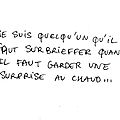 JE SUIS QUELQU'UN QU'IL
FAUT SURBRIEFFER QUAND
IL FAUT GARDER UNE
SURPRISE AU CHAUD...